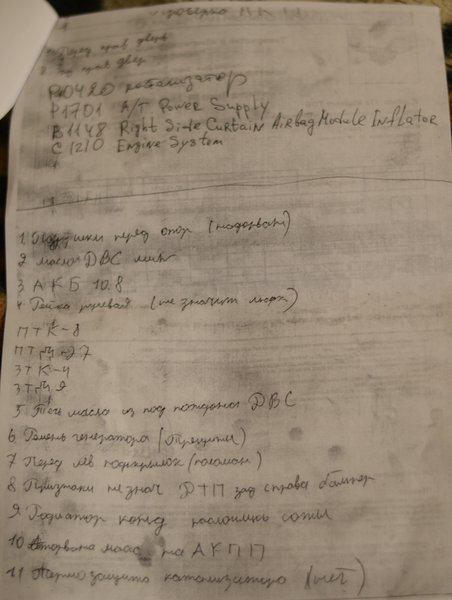 Перед прав дверь
P0420 катализатор
P1701 A/T Power Supply
B1148 Right Side Curtain Airbag Module Inflator
C1210 Engine System
1 Подушки перед опор (надорван)
2 масло ДВС мин
3 АКБ 10.8
4 Рейка рулевая (не значит люфт)
ПТ К-8
ПТ
ЗТ К-4
ЗТ
5 Течь масла из под поддона ДВС
6 Ремень генератора (Трещины)
7 Перед лев подкрылок (поломан)
8 Признаки незнач ДТП зад справа бампер
9 Радиатор конд соты
10 масло на АКПП
11 Термозащита катализатора (нет)